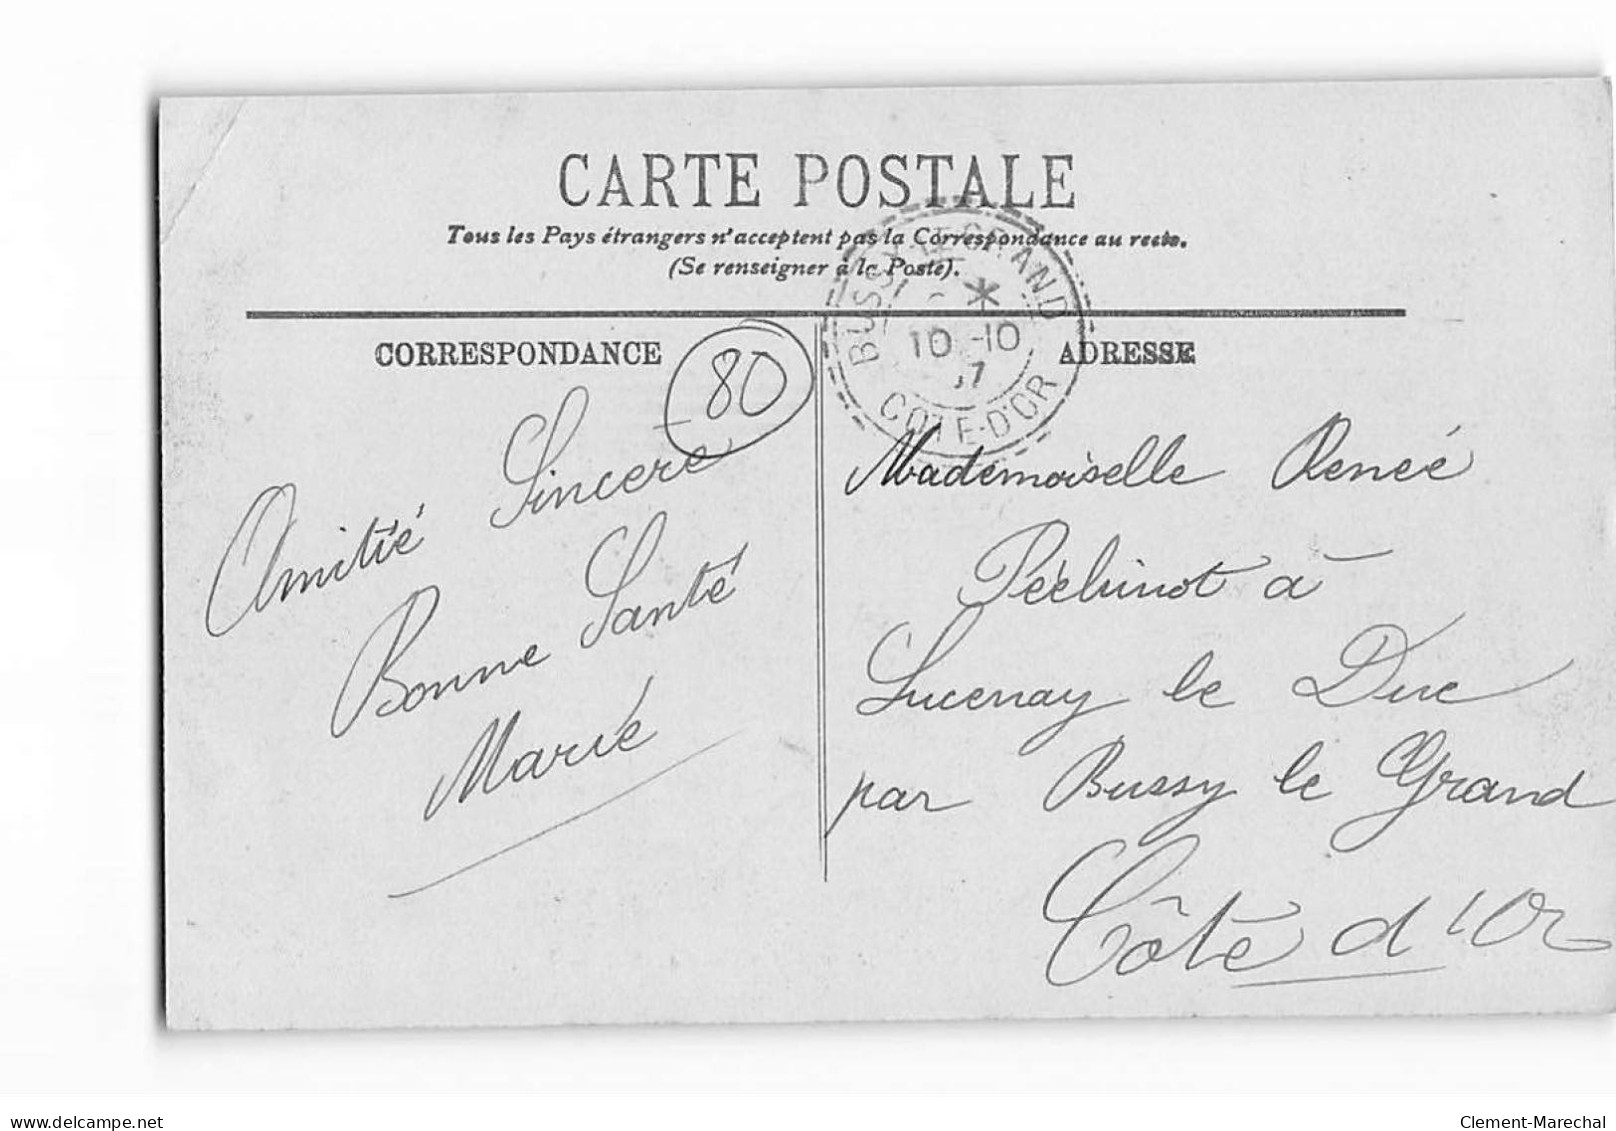 CARTE POSTALE
Tous les Pays étrangers n'acceptent pas la Correspondance au recto.
(Se renseigner à la Poste).
CORRESPONDANCE
80
Amitié Sincère
Bonne Santé
Marie
BUSSY LE GRAND
10 -10
07
COTE-D'OR
ADRESSE
Mademoiselle Renée
Péchinot à
Lucenay le Duc
par Bussy le Grand
Côte d'Or
delcampe.net
Clement-Marechal